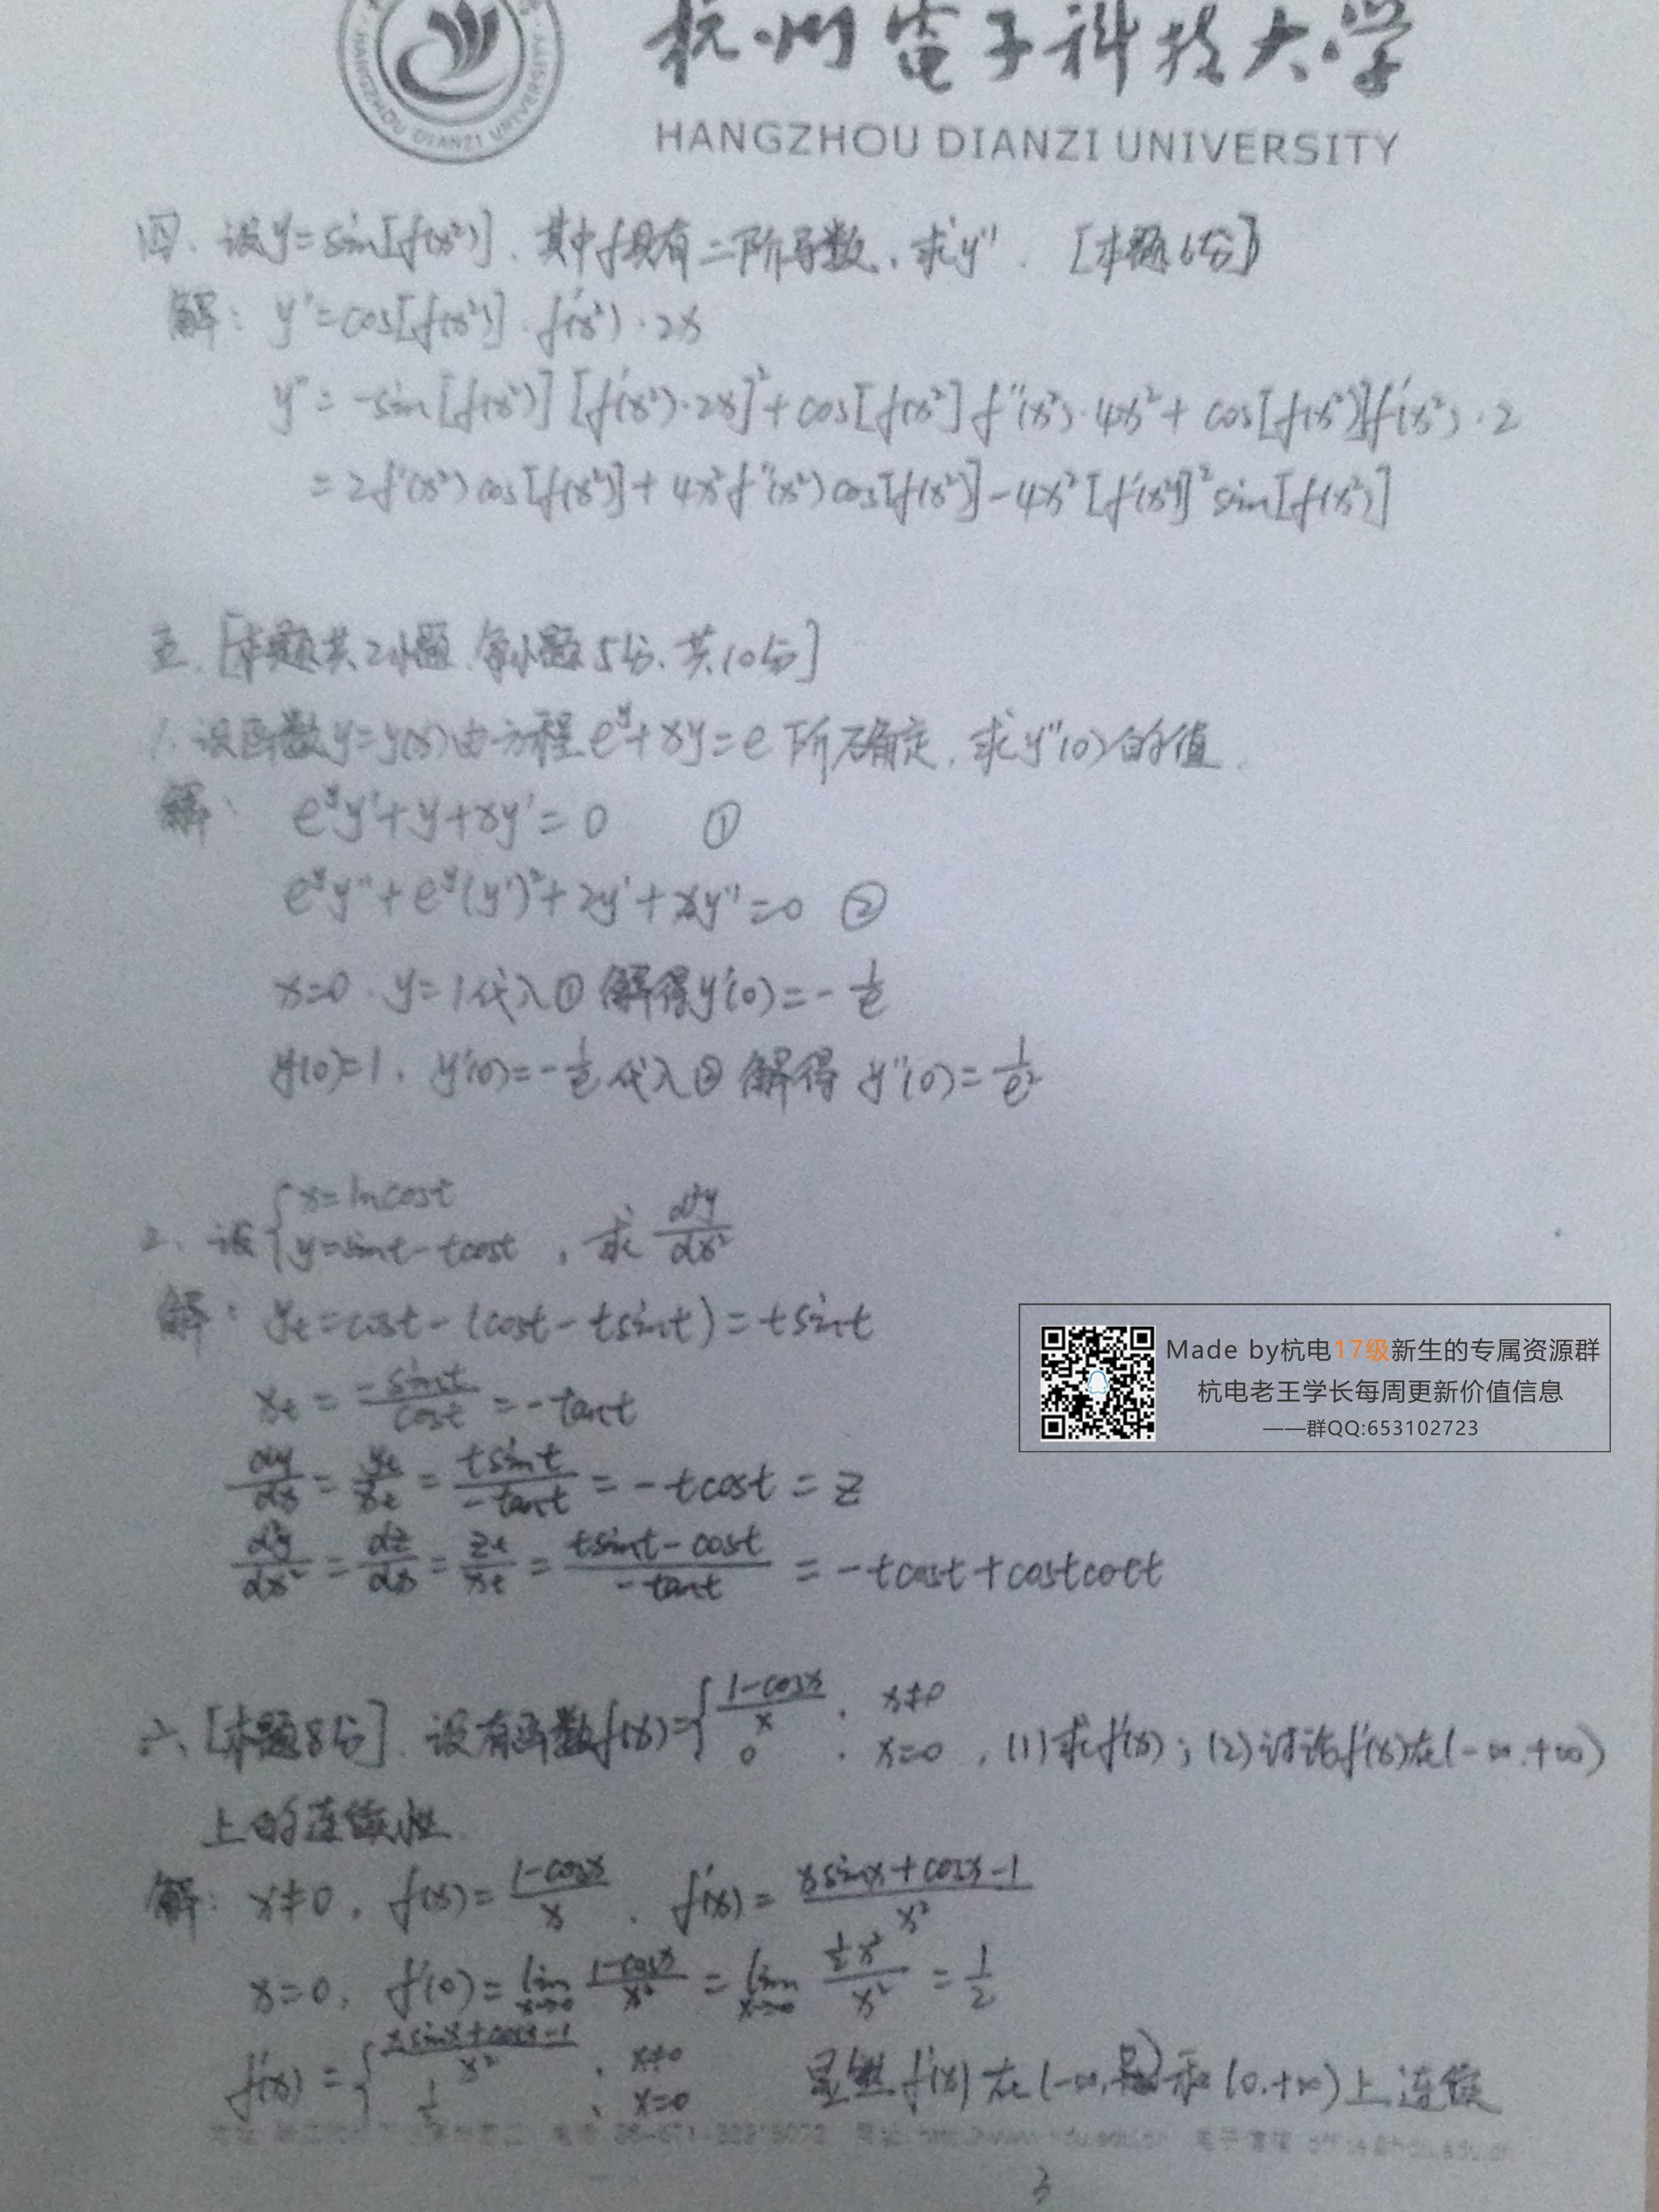 杭州電子科技大学
HANGZHOU DIANZI UNIVERSITY
HANGZHOU DIANZI UNIVERSITY
四、设y=sin[f(x²)],其中f具有二阶导数,求y''. [本题6分]
解: y'=cos[f(x²)]·f'(x²)·2x
y''=-sin[f(x²)][f'(x²)·2x]²+cos[f(x²)]f''(x²)·4x²+cos[f(x²)]f'(x²)·2
=2f'(x²)cos[f(x²)]+4x²f''(x²)cos[f(x²)]-4x²[f'(x²)]²sin[f(x²)]
五、[本题共2小题、每小题5分、共10分]
1. 设函数y=y(x)由方程e^y+xy=e所确定,求y''(0)的值.
解: e^y y'+y+xy'=0 ①
e^y y''+e^y(y')²+2y'+xy''=0 ②
x=0、y=1代入① 解得y'(0)=-1/e
y(0)=1、y'(0)=-1/e代入② 解得 y''(0)=1/e²
2、设{x=lncost
y=sint-tcost ,求 d²y/dx²
解: y_t=cost-(cost-tsint)=tsint
x_t=-sint/cost=-tant
dy/dx=y_t/x_t=tsint/-tant=-tcost=z
d²y/dx²=dz/dx=z_t/x_t=(tsint-cost)/-tant=-tcost+costcott
Made by杭电17级新生的专属资源群
杭电老王学长每周更新价值信息
——群QQ:653102723
六、[本题8分]、设有函数f(x)={(1-cosx)/x, x≠0
0, x=0 ,(1)求f'(x);(2)讨论f'(x)在(-∞,+∞)
上的连续性.
解: x≠0, f(x)=(1-cosx)/x, f'(x)=(xsinx+cosx-1)/x²
x=0, f'(0)=lim x→0 (1-cosx)/x²=lim x→0 (½x²)/x²=1/2
f'(x)={(xsinx+cosx-1)/x², x≠0
1/2, x=0 显然f'(x)在(-∞,0)和(0,+∞)上连续
3